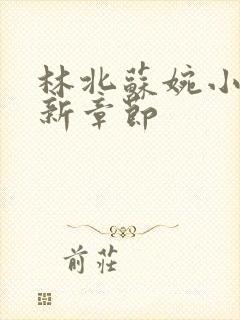 林北蘇婉小
新章節
前莊